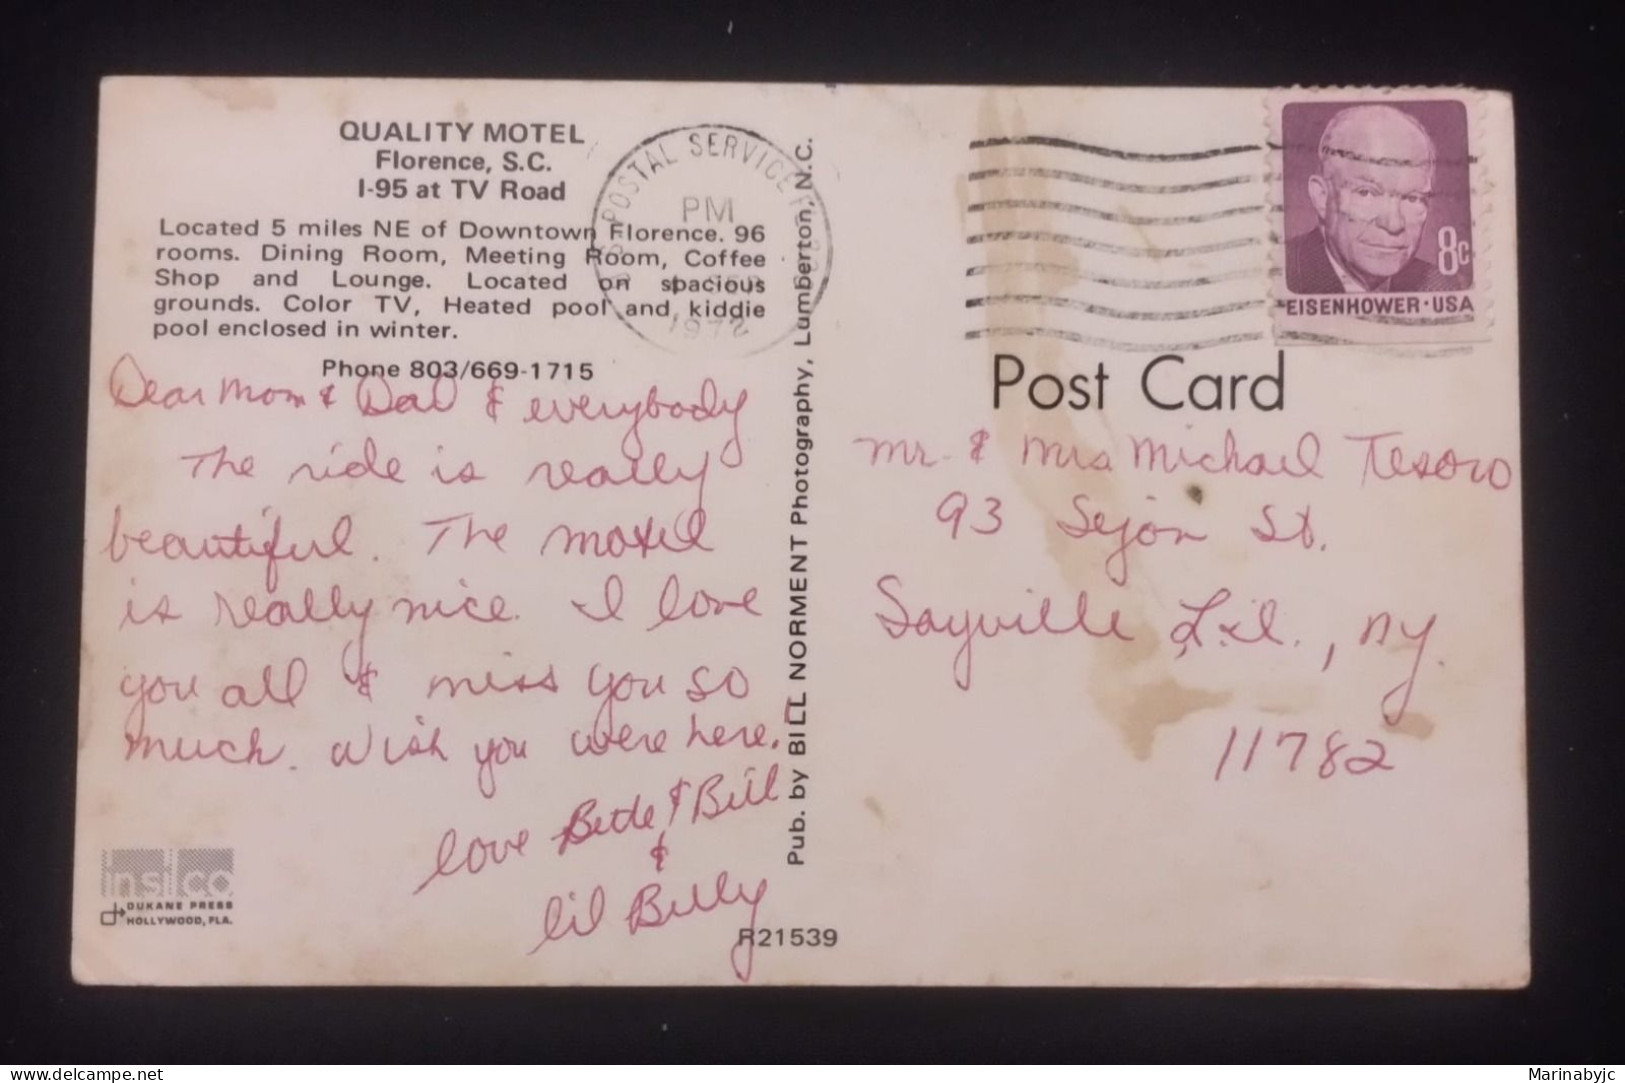 QUALITY MOTEL
Florence, S.C.
I-95 at TV Road
Located 5 miles NE of Downtown Florence. 96
rooms. Dining Room, Meeting Room, Coffee
Shop and Lounge. Located on spacious
grounds. Color TV, Heated pool and kiddie
pool enclosed in winter.
Phone 803/669-1715
Dear Mom & Dad & everybody
The ride is really
beautiful. The motel
is really nice. I love
you all & miss you so
much. Wish you were here.
love & Bill
&
lil Billy
insico
DUKANE PRESS
HOLLYWOOD, FLA.
R21539
Pub. by BILL NORMENT Photography, Lumberton, N.C.
POSTAL SERVICE
PM
SEP
1972
EISENHOWER · USA
8c
Post Card
Mr. & Mrs Michael Tesoro
93 Sejon St.
Sayville L.I., NY.
11782
Marinabyjc